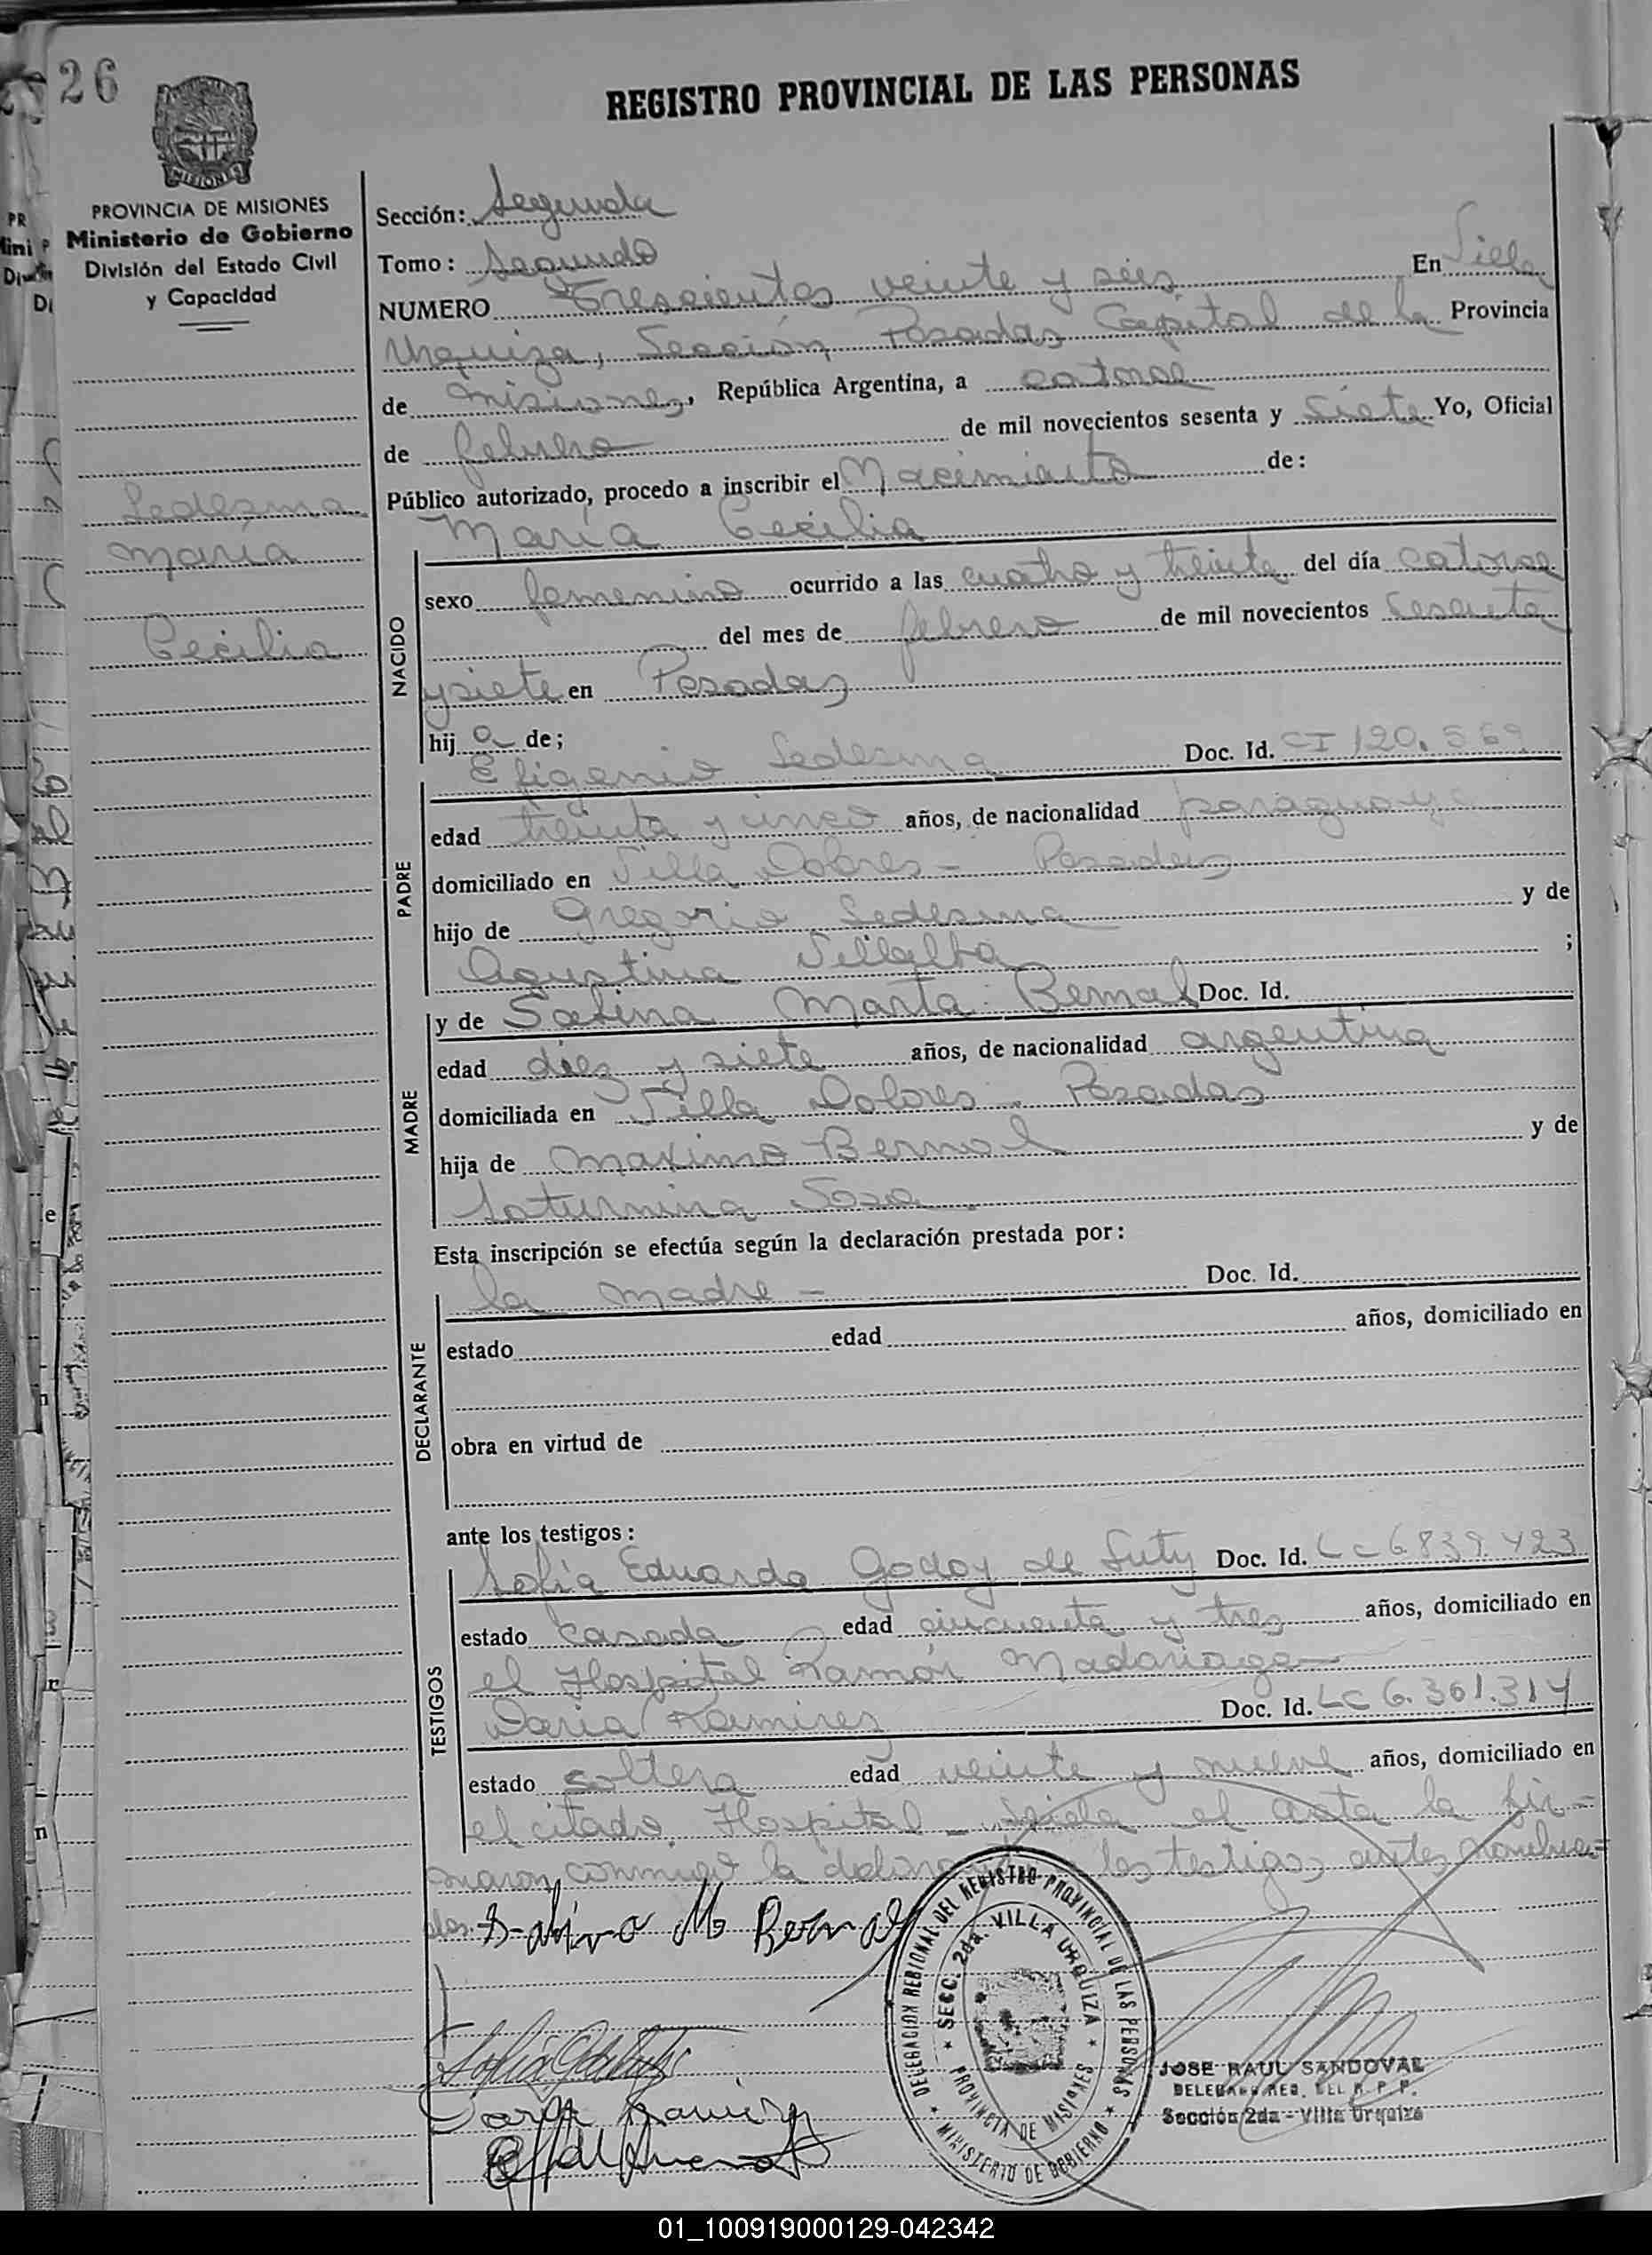 26
REGISTRO PROVINCIAL DE LAS PERSONAS
MISIONES
PROVINCIA DE MISIONES
Ministerio de Gobierno
División del Estado Civil
y Capacidad
Ledezma
María
Cecilia
Sección: Segunda
Tomo: Segundo
NUMERO Trescientos veinte y seis En Villa
Urquiza, Sección Posadas Capital de la Provincia
de Misiones, República Argentina, a catorce
de febrero de mil novecientos sesenta y siete Yo, Oficial
Público autorizado, procedo a inscribir el Nacimiento de:
María Cecilia
NACIDO
sexo femenino ocurrido a las cuatro y treinta del día catorce
del mes de febrero de mil novecientos sesenta
y siete en Posadas
hija de;
Efigenio Ledesma Doc. Id. CI 120.569
PADRE
edad treinta y cinco años, de nacionalidad paraguaya
domiciliado en Villa Dolores - Posadas
hijo de Gregorio Ledesma y de
Agustina Villalba ;
y de Sabina Marta Bernal Doc. Id.
MADRE
edad diez y siete años, de nacionalidad argentina
domiciliada en Villa Dolores - Posadas
hija de Maximo Bernal y de
Saturnina Sosa
Esta inscripción se efectúa según la declaración prestada por:
la madre - Doc. Id.
DECLARANTE
estado edad años, domiciliado en
obra en virtud de
ante los testigos:
Sofía Eduarda Godoy de Doc. Id. LC 6.839.423
TESTIGOS
estado casada edad cincuenta y tres años, domiciliado en
el Hospital Ramón Madariaga
Daria Ramirez Doc. Id. LC 6.361.314
estado soltera edad veinte y nueve años, domiciliado en
el citado Hospital - Leida el acta la fir-
maron conmigo la los testigos antes nombra-
dos.
Sabina M Bernal
DELEGACION REGIONAL DEL REGISTRO PROVINCIAL DE LAS PERSONAS
SECC. 2da. VILLA URQUIZA
PROVINCIA DE MISIONES
MINISTERIO DE GOBIERNO
JOSE RAUL SANDOVAL
DELEGADO REG. DEL R. P. P.
Sección 2da - Villa Urquiza
01_100919000129-042342